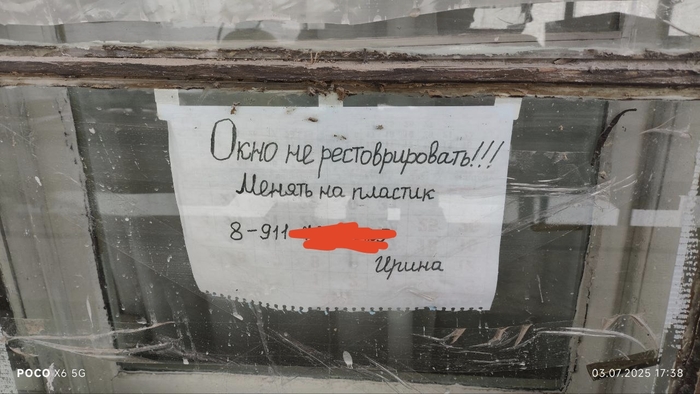 Окно не рестоврировать!!!
Менять на пластик
8-911
Ирина
POCO X6 5G
03.07.2025 17:38